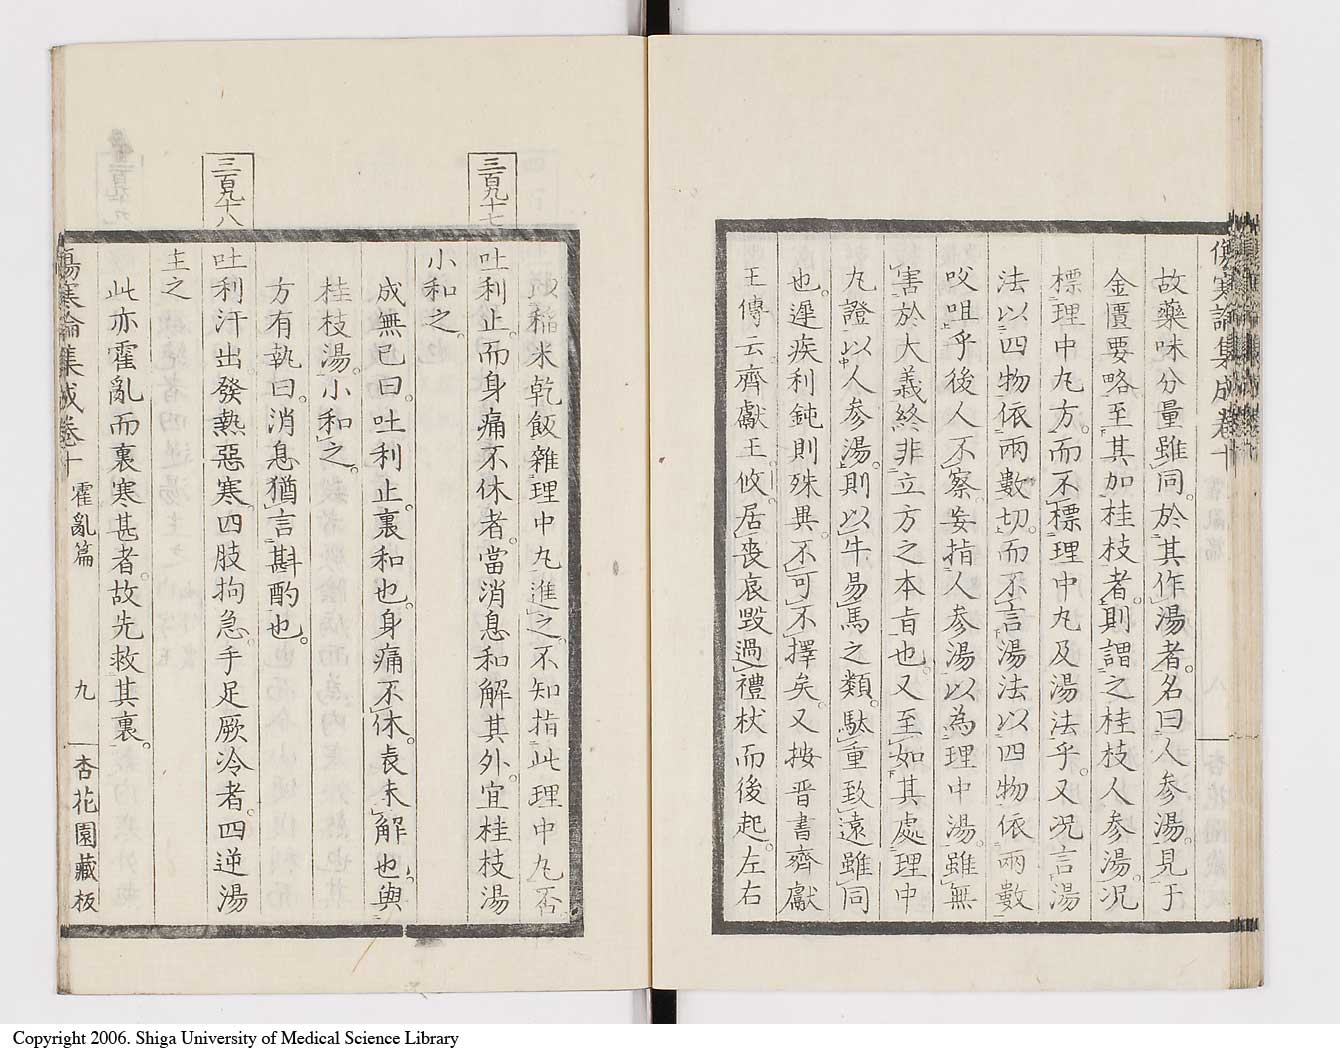 傷寒論集成卷十
故藥味分量雖同。於其作湯者。名曰人参湯。見于
金匱要略。至其加桂枝者。則謂之桂枝人参湯。况
標理中丸方。而不標理中丸及湯法乎。又况言湯
法以四物依兩數切。而不言湯法以四物依兩數
㕮咀乎。後人不察。妄指人参湯以為理中湯。雖無
害於大義。終非立方之本旨也。又至如其處理中
丸證以人参湯。則以牛易馬之類。駄重致遠雖同
也。遲疾利鈍則殊異。不可不擇矣。又按晋書齊獻
王傳云。齊獻王攸。居喪哀毀過禮。杖而後起。左右
以稲米乾飯雜理中丸進之。不知指此理中丸否
三百九十七
吐利止。而身痛不休者。當消息和解其外。宜桂枝湯
小和之。
成無已曰。吐利止。裏和也。身痛不休。表未解也。與
桂枝湯。小和之。
方有執曰。消息。猶言斟酌也。
三百九十八
吐利汗出。發熱惡寒。四肢拘急。手足厥冷者。四逆湯
主之
此亦霍亂而裏寒甚者。故先救其裏。
傷寒論集成卷十 霍亂篇 九 杏花園藏板
Copyright 2006. Shiga University of Medical Science Library